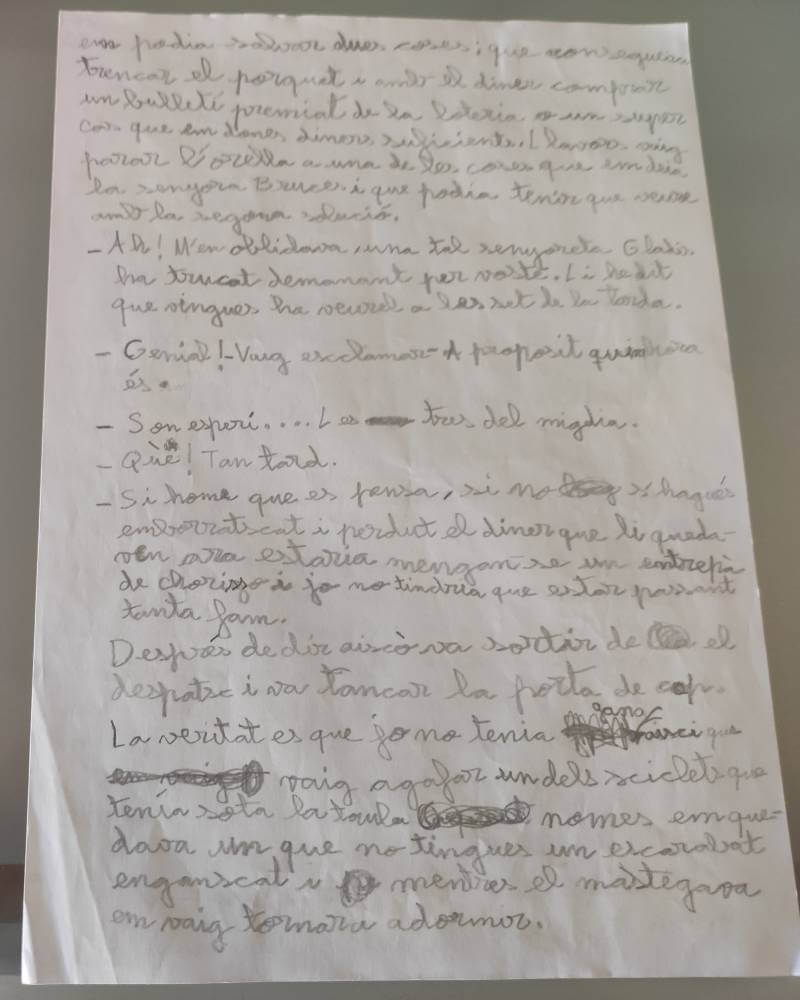 em podia salvar dues coses; que consegueixi
trencar el porquet i amb el diner comprar
un bulletí premiat de la loteria o un super
cas que em dones diners suficients. Llavors vaig
parar l'orella a una de les coses que em deia
la senyora Bruce. i que podia tenir que veure
amb la segona solució.
- Ah! M'en oblidava, una tal senyoreta Gladis.
ha trucat demanant per vostè. Li he dit
que vingues ha veure'l a les set de la tarda.
- Genial!-Vaig escclamar-A proposit quin hora
és.
- Son esperi.... Les tres del migdia.
- Què! Tan tard.
- Si home que es pensa, si no s'hagués
emborratscat i perdut el diner que li queda-
ven ara estaria mengan-se un entrepà
de chorisso i jo no tindria que estar passant
tanta fam.
Després de dir aiscò va sortir de el
despatsc i va tancar la porta de cop.
La veritat es que jo no tenia gana, aisci que
vaig agafar un dels sciclets que
tenía sota la taula nomes em que-
dava un que no tingues un escarabat
enganscat i mentres el mastegava
em vaig tornar a adormir.